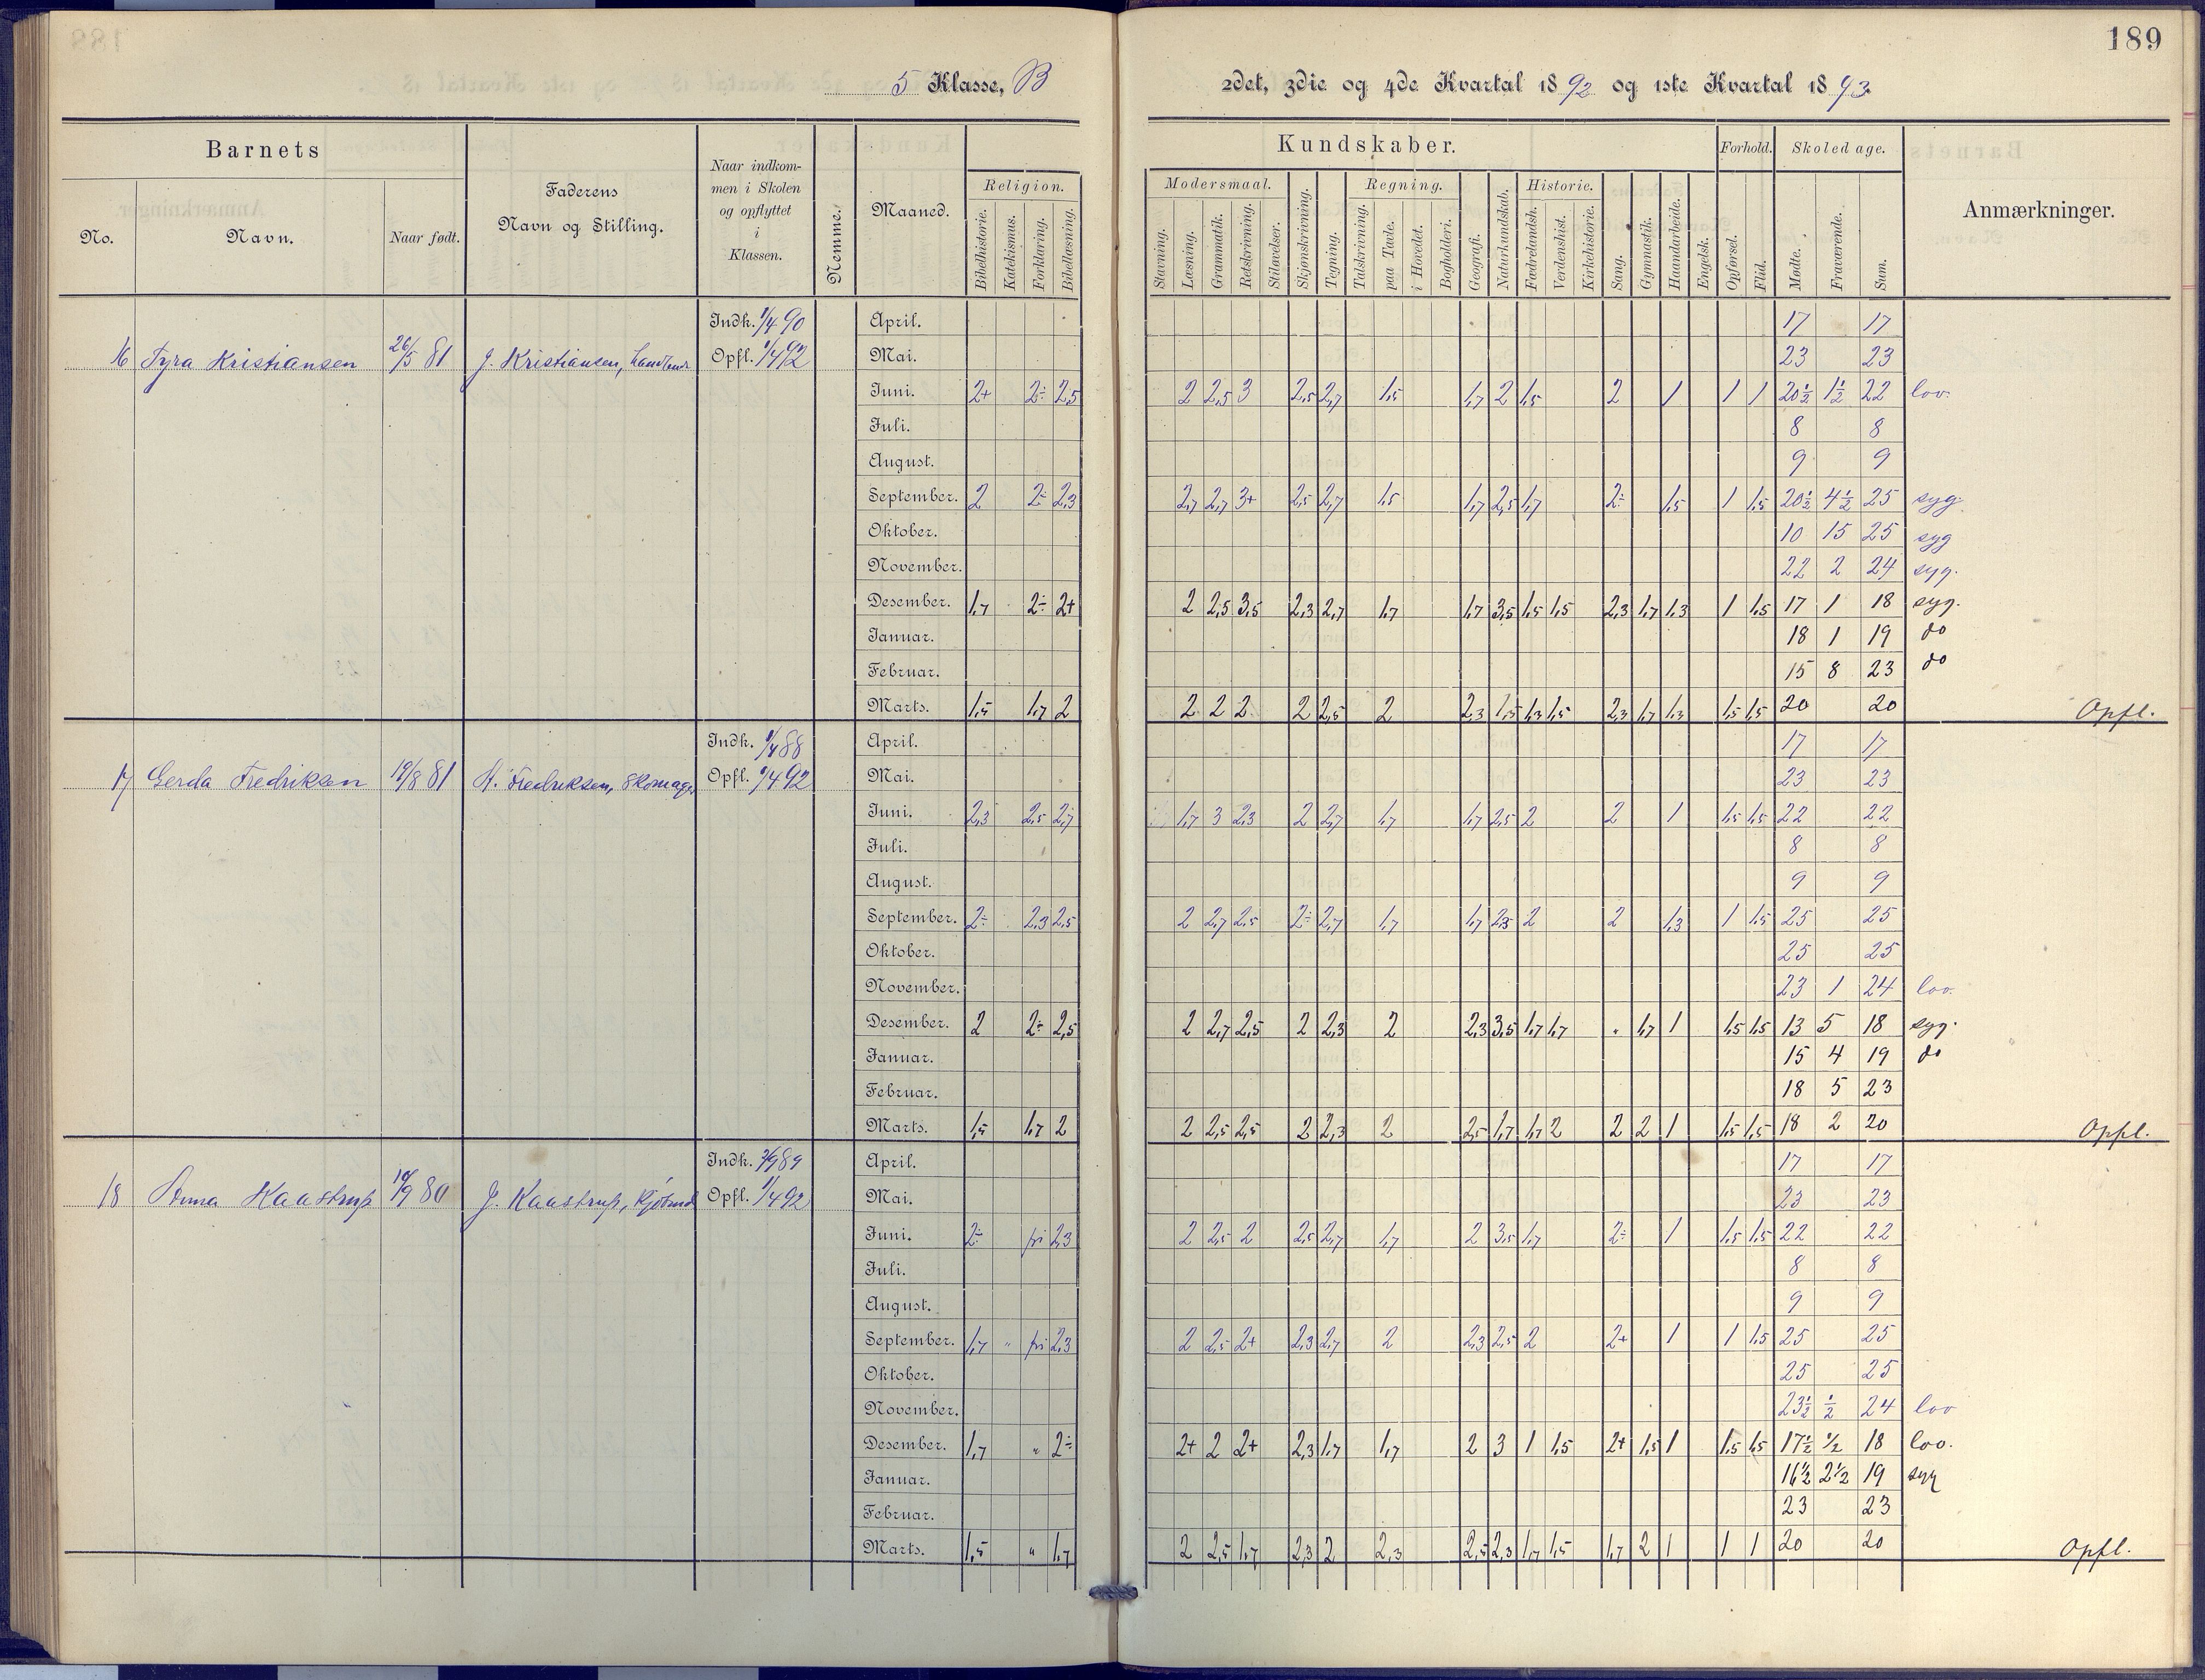 189
5 Klasse, B
2det, 3die og 4de Kvartal 1892 og 1ste Kvartal 1893
Barnets
Faderens
Navn og Stilling.
Naar indkom-
men i Skolen
og opflyttet
i
Klassen.
Nemme.
Maaned.
Religion.
Kundskaber.
Forhold.
Skoledage.
Anmærkninger.
No.
Navn.
Naar født.
Bibelhistorie.
Katekismus.
Forklaring.
Bibellæsning.
Modersmaal.
Regning.
Historie.
Stavning.
Læsning.
Grammatik.
Retskrivning.
Stiløvelser.
Skjønskrivning.
Tegning.
Talskrivning.
paa Tavle.
i Hovedet.
Bogholderi.
Geografi.
Naturkundskab.
Fædrelandsh.
Verdenshist.
Kirkehistorie.
Sang.
Gymnastik.
Haandarbeide.
Engelsk.
Opførsel.
Flid.
Mødte.
Fraværende.
Sum.
16 Tyra Kristiansen 26/5 81 J. Kristiansen,
Indk. 1/4 90
Opfl. 1/4 92
April. 17 17
Mai. 23 23
Juni. 2+ 2÷ 2,5 2 2,5 3 2,5 2,7 1,5 1,7 2 1,5 2 1 1 1 20½ 1½ 22 lov.
Juli. 8 8
August. 9 9
September. 2 2÷ 2,3 2,7 2,7 3+ 2,5 2,7 1,5 1,7 2,5 1,7 2÷ 1,5 1 1,5 20½ 4½ 25 syg.
Oktober. 10 15 25 syg
November. 22 2 24 syg.
Desember. 1,7 2÷ 2+ 2 2,5 3,5 2,3 2,7 1,7 1,7 3,5 1,5 1,5 2,3 1,7 1,3 1 1,5 17 1 18 syg.
Januar. 18 1 19 do
Februar. 15 8 23 do
Marts. 1,5 1,7 2 2 2 2 2 2,5 2 2,3 1,5 1,3 1,5 2,3 1,7 1,3 1,5 1,5 20 20 Opfl.
17 Gerda Fredriksen 19/8 81 H. Fredriksen, Skomager
Indk. 1/4 88
Opfl. 1/4 92
April. 17 17
Mai. 23 23
Juni. 2,3 2,5 2,7 1,7 3 2,3 2 2,7 1,7 1,7 2,5 2 2 1 1,5 1,5 22 22
Juli. 8 8
August. 9 9
September. 2÷ 2,3 2,5 2 2,7 2,5 2÷ 2,7 1,7 1,7 2,5 2 2 1,3 1 1,5 25 25
Oktober. 25 25
November. 23 1 24 lov.
Desember. 2 2÷ 2,5 2 2,7 2,5 2 2,3 2 2,3 3,5 1,7 1,7 " 1,7 1 1,5 1,5 13 5 18 syg.
Januar. 15 4 19 do
Februar. 18 5 23
Marts. 1,5 1,7 2 2 2,5 2,5 2 2,3 2 2,5 1,7 1,7 2 2 2 1 1,5 1,5 18 2 20 Opfl.
18 Anna Kaastrup 19/9 80 J. Kaastrup, Kjøbmd
Indk. 2/9 89
Opfl. 1/4 92
April. 17 17
Mai. 23 23
Juni. 2÷ fri 2,3 2 2,5 2 2,5 2,7 1,7 2 3,5 1,7 2÷ 1 1,5 1,5 22 22
Juli. 8 8
August. 9 9
September. 1,7 " fri 2,3 2 2,5 2+ 2,3 2,7 2 2,3 2,5 2 2+ 1 1 1,5 25 25
Oktober. 25 25
November. 23½ ½ 24 lov
Desember. 1,7 " 2÷ 2+ 2 2+ 2,3 1,7 1,7 2 3 1 1,5 2+ 1,5 1 1,5 1,5 17½ ½ 18 lov.
Januar. 16½ 2½ 19 syg
Februar. 23 23
Marts. 1,5 " 1,7 2 2,5 1,7 2,3 2 2,3 2,5 2,3 1,7 1,5 1,7 2 1 1 1 20 20 Opfl.